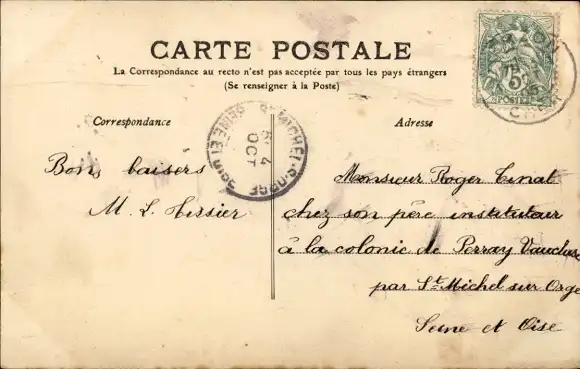 CARTE POSTALE
La Correspondance au recto n'est pas acceptée par tous les pays étrangers
(Se renseigner à la Poste)
Correspondance
Adresse
5c
POSTES
ST MICHEL-S-ORGE
4
OCT
SEINE ET OISE
Bons baisers
M. L. Tissier
Monsieur Roger Tinat
chez son père instituteur
à la colonie de Perray Vaucluse
par St Michel sur Orge
Seine et Oise